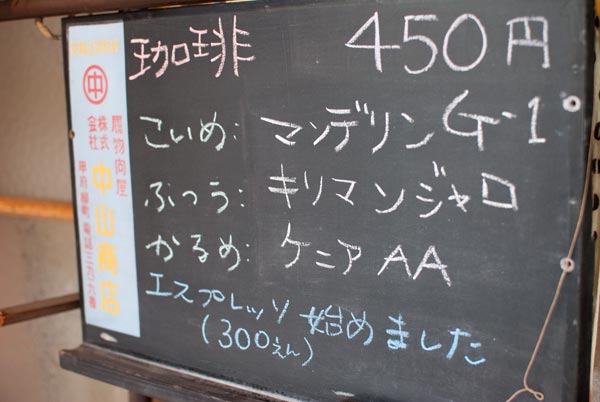 珈琲 450円
こいめ: マンデリンG-1
ふつう: キリマンジャロ
かるめ: ケニアAA
エスプレッソ始めました
(300えん)
中
履物問屋
株式会社 中山商店
甲府 柳町 電話三九九番